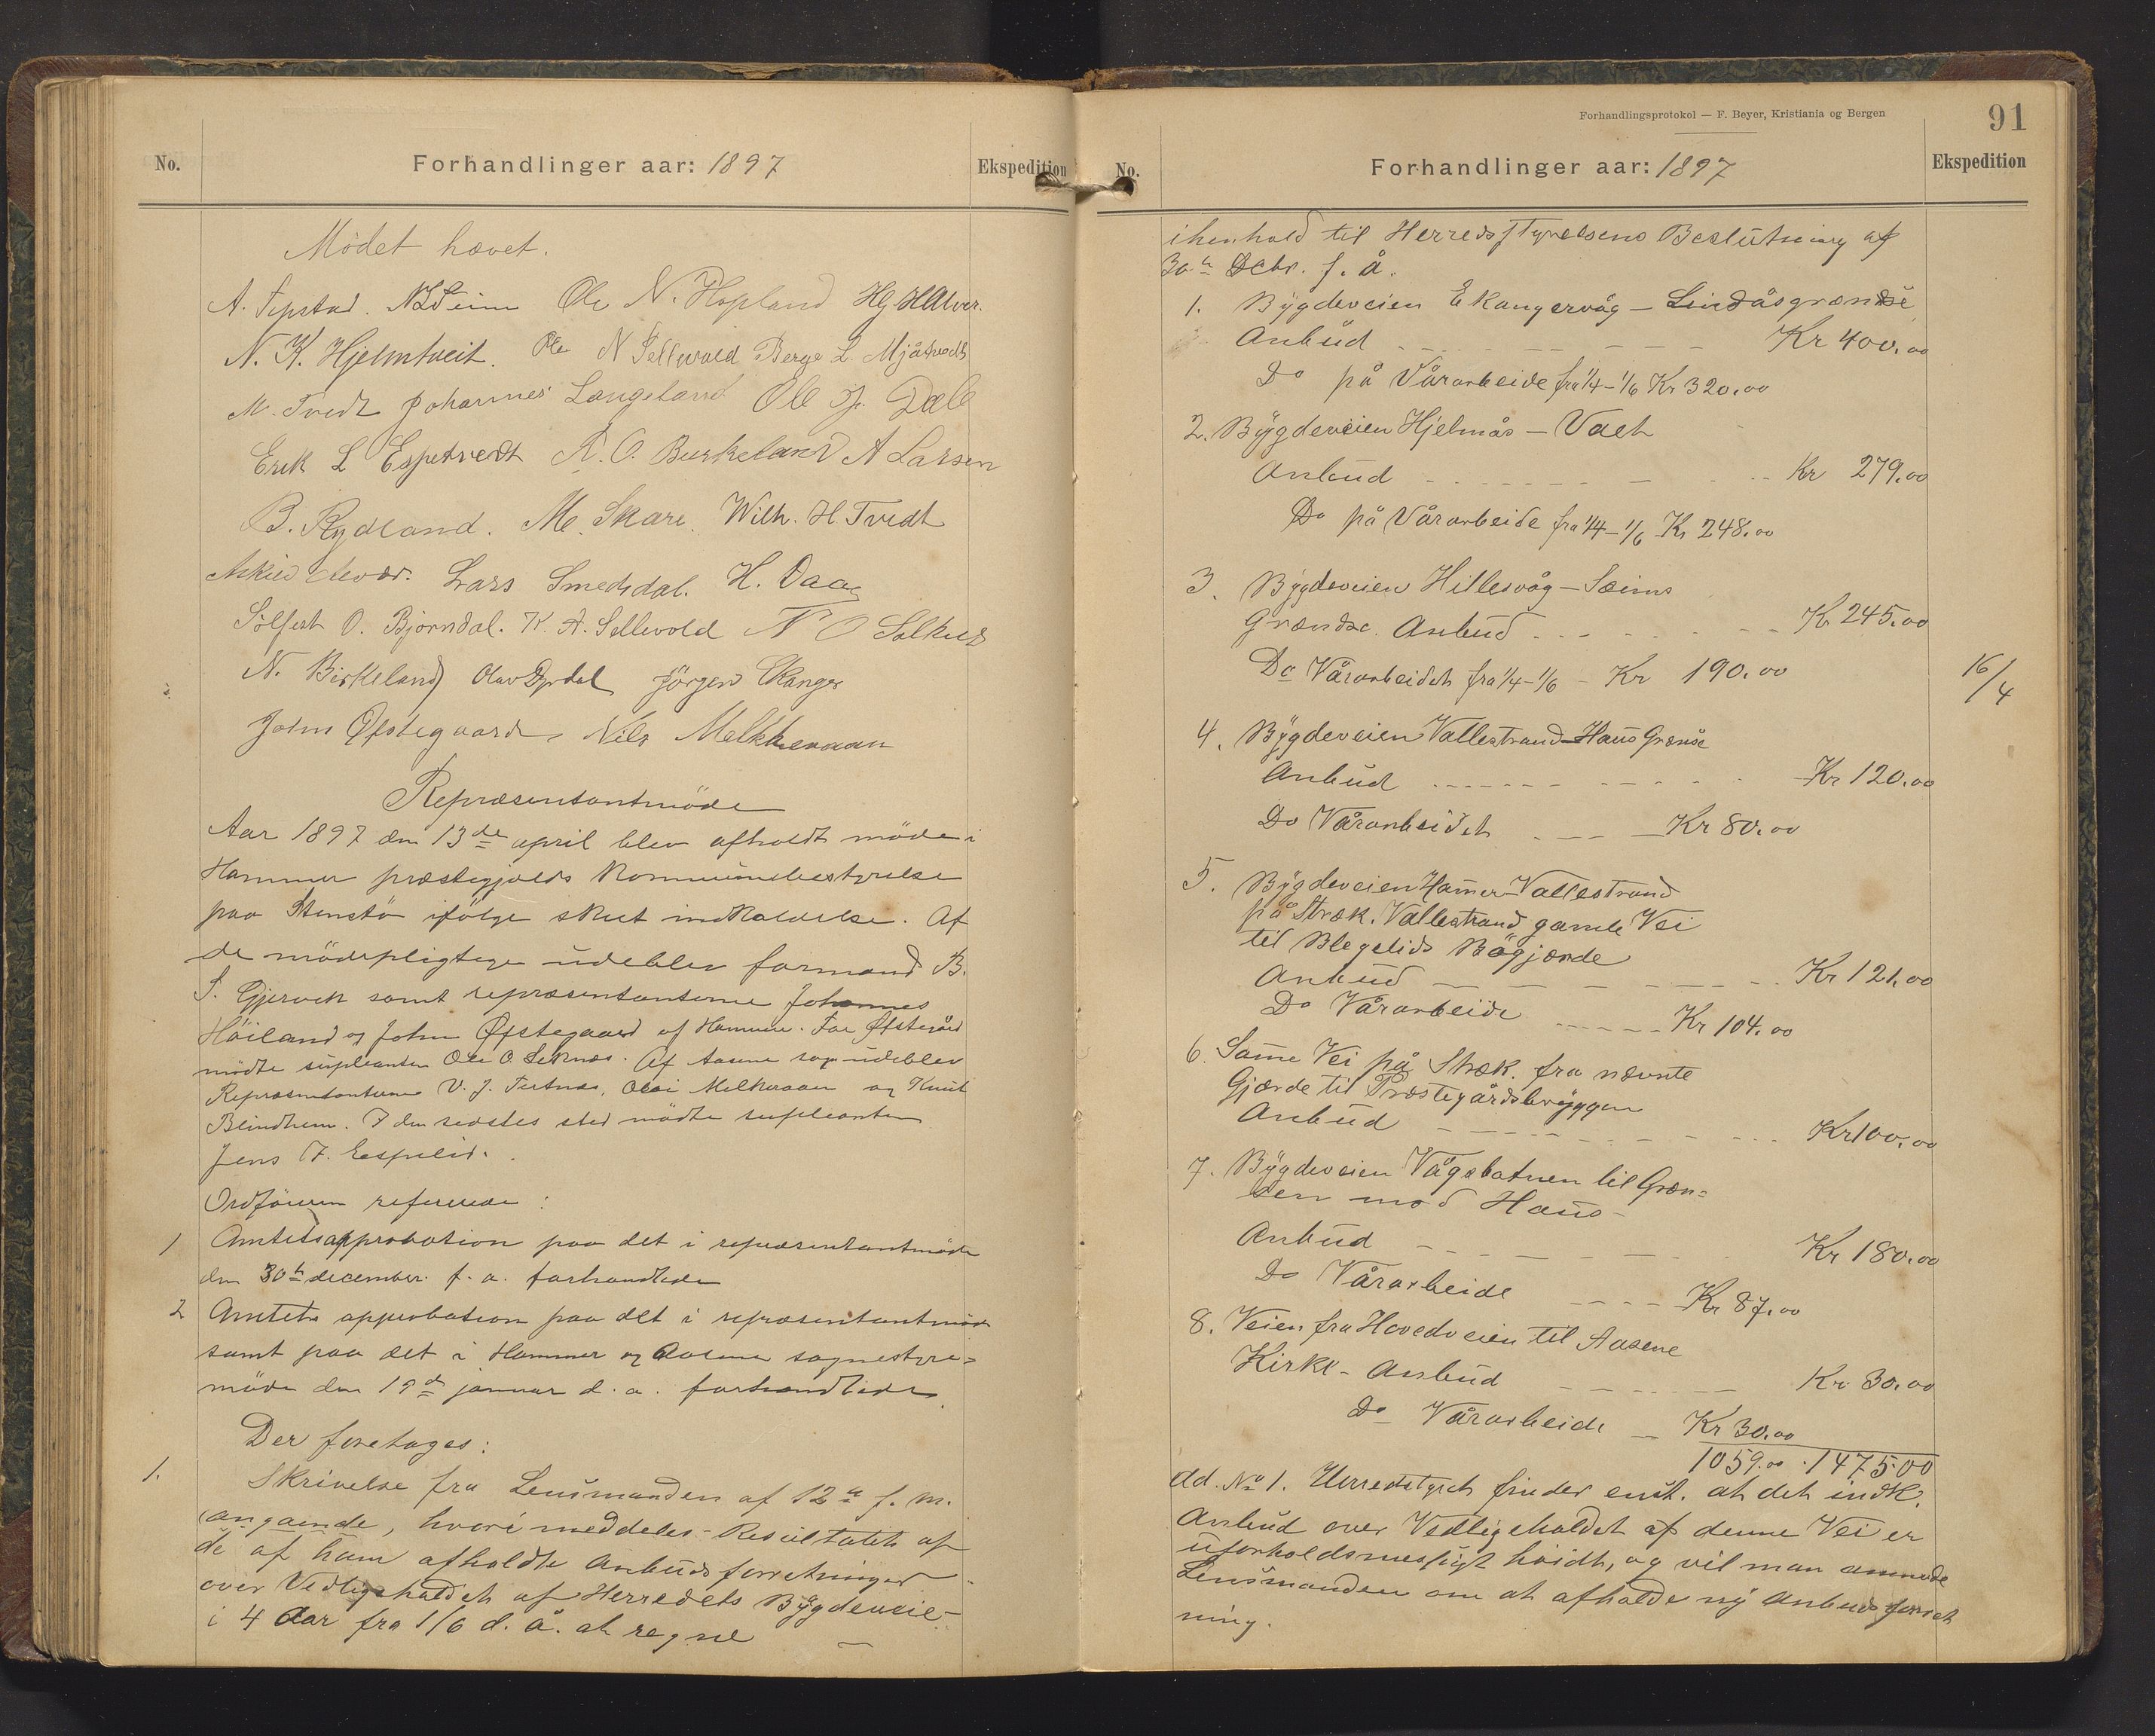 No.
Forhandlinger aar: 1897
Ekspedition
Mödet hævet.
Ole N. Hopland
N. K. Hjelmtveit. Ole N Sellevold Berge L. Mjåtvedt
M. Tvedt Johannes Langeland Ole J. Dale
Erik L Espetvedt R. O. Burkeland A Larsen
B. Rydland. M. Skare. Wilh. H. Tvedt
Lars Smedsdal. H. Daae
Sölfest O. Bjørndal. K. A. Sellevold N O
N. Birkeland Olav Dyrdal Jörgen Ekanger
John Øfstegaard, Nils Melkheraaen
Repræsentantmöde
Aar 1897 den 13de april blev afholdt möde i
Hammer præstegjælds Kommunebestyrelse
paa Stenstö ifölge skeet indkaldelse. Af
de mödepligtige udeblev formand B.
S. Gjervik samt repræsentanterne Johannes
Höiland og John Øfstegaard af Hammer. For Øfstegård
mödte supleanten Ole O Seknæs. Af Aasene sogn udeblev
Repræsentanterne V. J. Tertnæs, Olai Melkeraaen og Knut
Blindheim. I den sidstes sted mödte supleanten
Jens F. Espelid.
Ordföreren refererede:
1 Amtetsapprobation paa det i repræsentantmöde
den 30te december f. a. forhandlede
2 Amtets approbation paa det i repræsentantmöde
samt paa det i Hammer og Aasene sognestyre-
möde den 19de januar d. a. forhandlede.
Der foretages:
1. Skrivelse fra Lensmanden af 12te f. m.
angaaende, hvori meddeles Resultatet af
de af ham afholdte Anbudsforretninger
over Vedligeholdet af Herredets Bygdeveie
i 4 Aar fra 1/6 d. å. at regne
Forhandlingsprotokol — F. Beyer, Kristiania og Bergen
91
No.
Forhandlinger aar: 1897
Ekspedition
ihenhold til Herredsstyrelsens Beslutning af
30te Dcbr. f. å.
1. Bygdeveien Ekangervåg – Lindåsgrændse
Anbud Kr 400.00
Do på Vårarbeide fra 1/4–1/6 Kr 320.00
2. Bygdeveien Hjelmås – Vaet
Anbud Kr 279.00
Do på Vårarbeide fra 1/4–1/6 Kr 248.00
3. Bygdeveien Hillesvåg – Sæims
Grændse. Anbud Kr 245.00
Do Vårarbeidet fra 1/4–1/6 – Kr 190.00
16/4
4. Bygdeveien Vallestrand–Haus Grænse
Anbud Kr 120.00
Do Vårarbeidet Kr 80.00
5. Bygdeveien Hamer–Vallestrand
på Stræk. Vallestrand gamle Vei
til Blegelids Bögjærde
Anbud Kr 121.00
Do Vårarbeide Kr 104.00
6. Same Vei på Stræk. fra nævnte
Gjærde til Præstegårdsbryggen
Anbud Kr 100.00
7. Bygdeveien Vågsbotnen til Græn-
sen mod Haus–
Anbud Kr 180.00
Do Vårarbeide Kr 87.00
8. Veien fra Hovedveien til Aasene
Kirke – Anbud Kr 30.00
Do Vårarbeide Kr 30.00
1059.00 . 1475.00
Ad. No 1. Herredstyret finder enst. at det indk.
Anbud over Vedligeholdet af denne Vei er
uforholdsmessigt höidt, og vil man anmode
Lensmanden om at afholde ny Anbudsforret
ning.